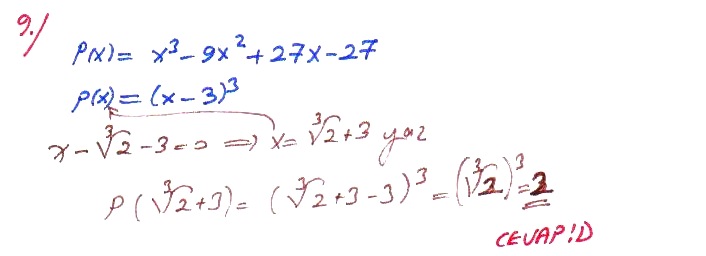 9./
P(x) = x³ - 9x² + 27x - 27
P(x) = (x - 3)³
x - ∛2 - 3 = 0 ⟹ x = ∛2 + 3 yaz
P(∛2 + 3) = (∛2 + 3 - 3)³ = (∛2)³ = 2
CEVAP: D